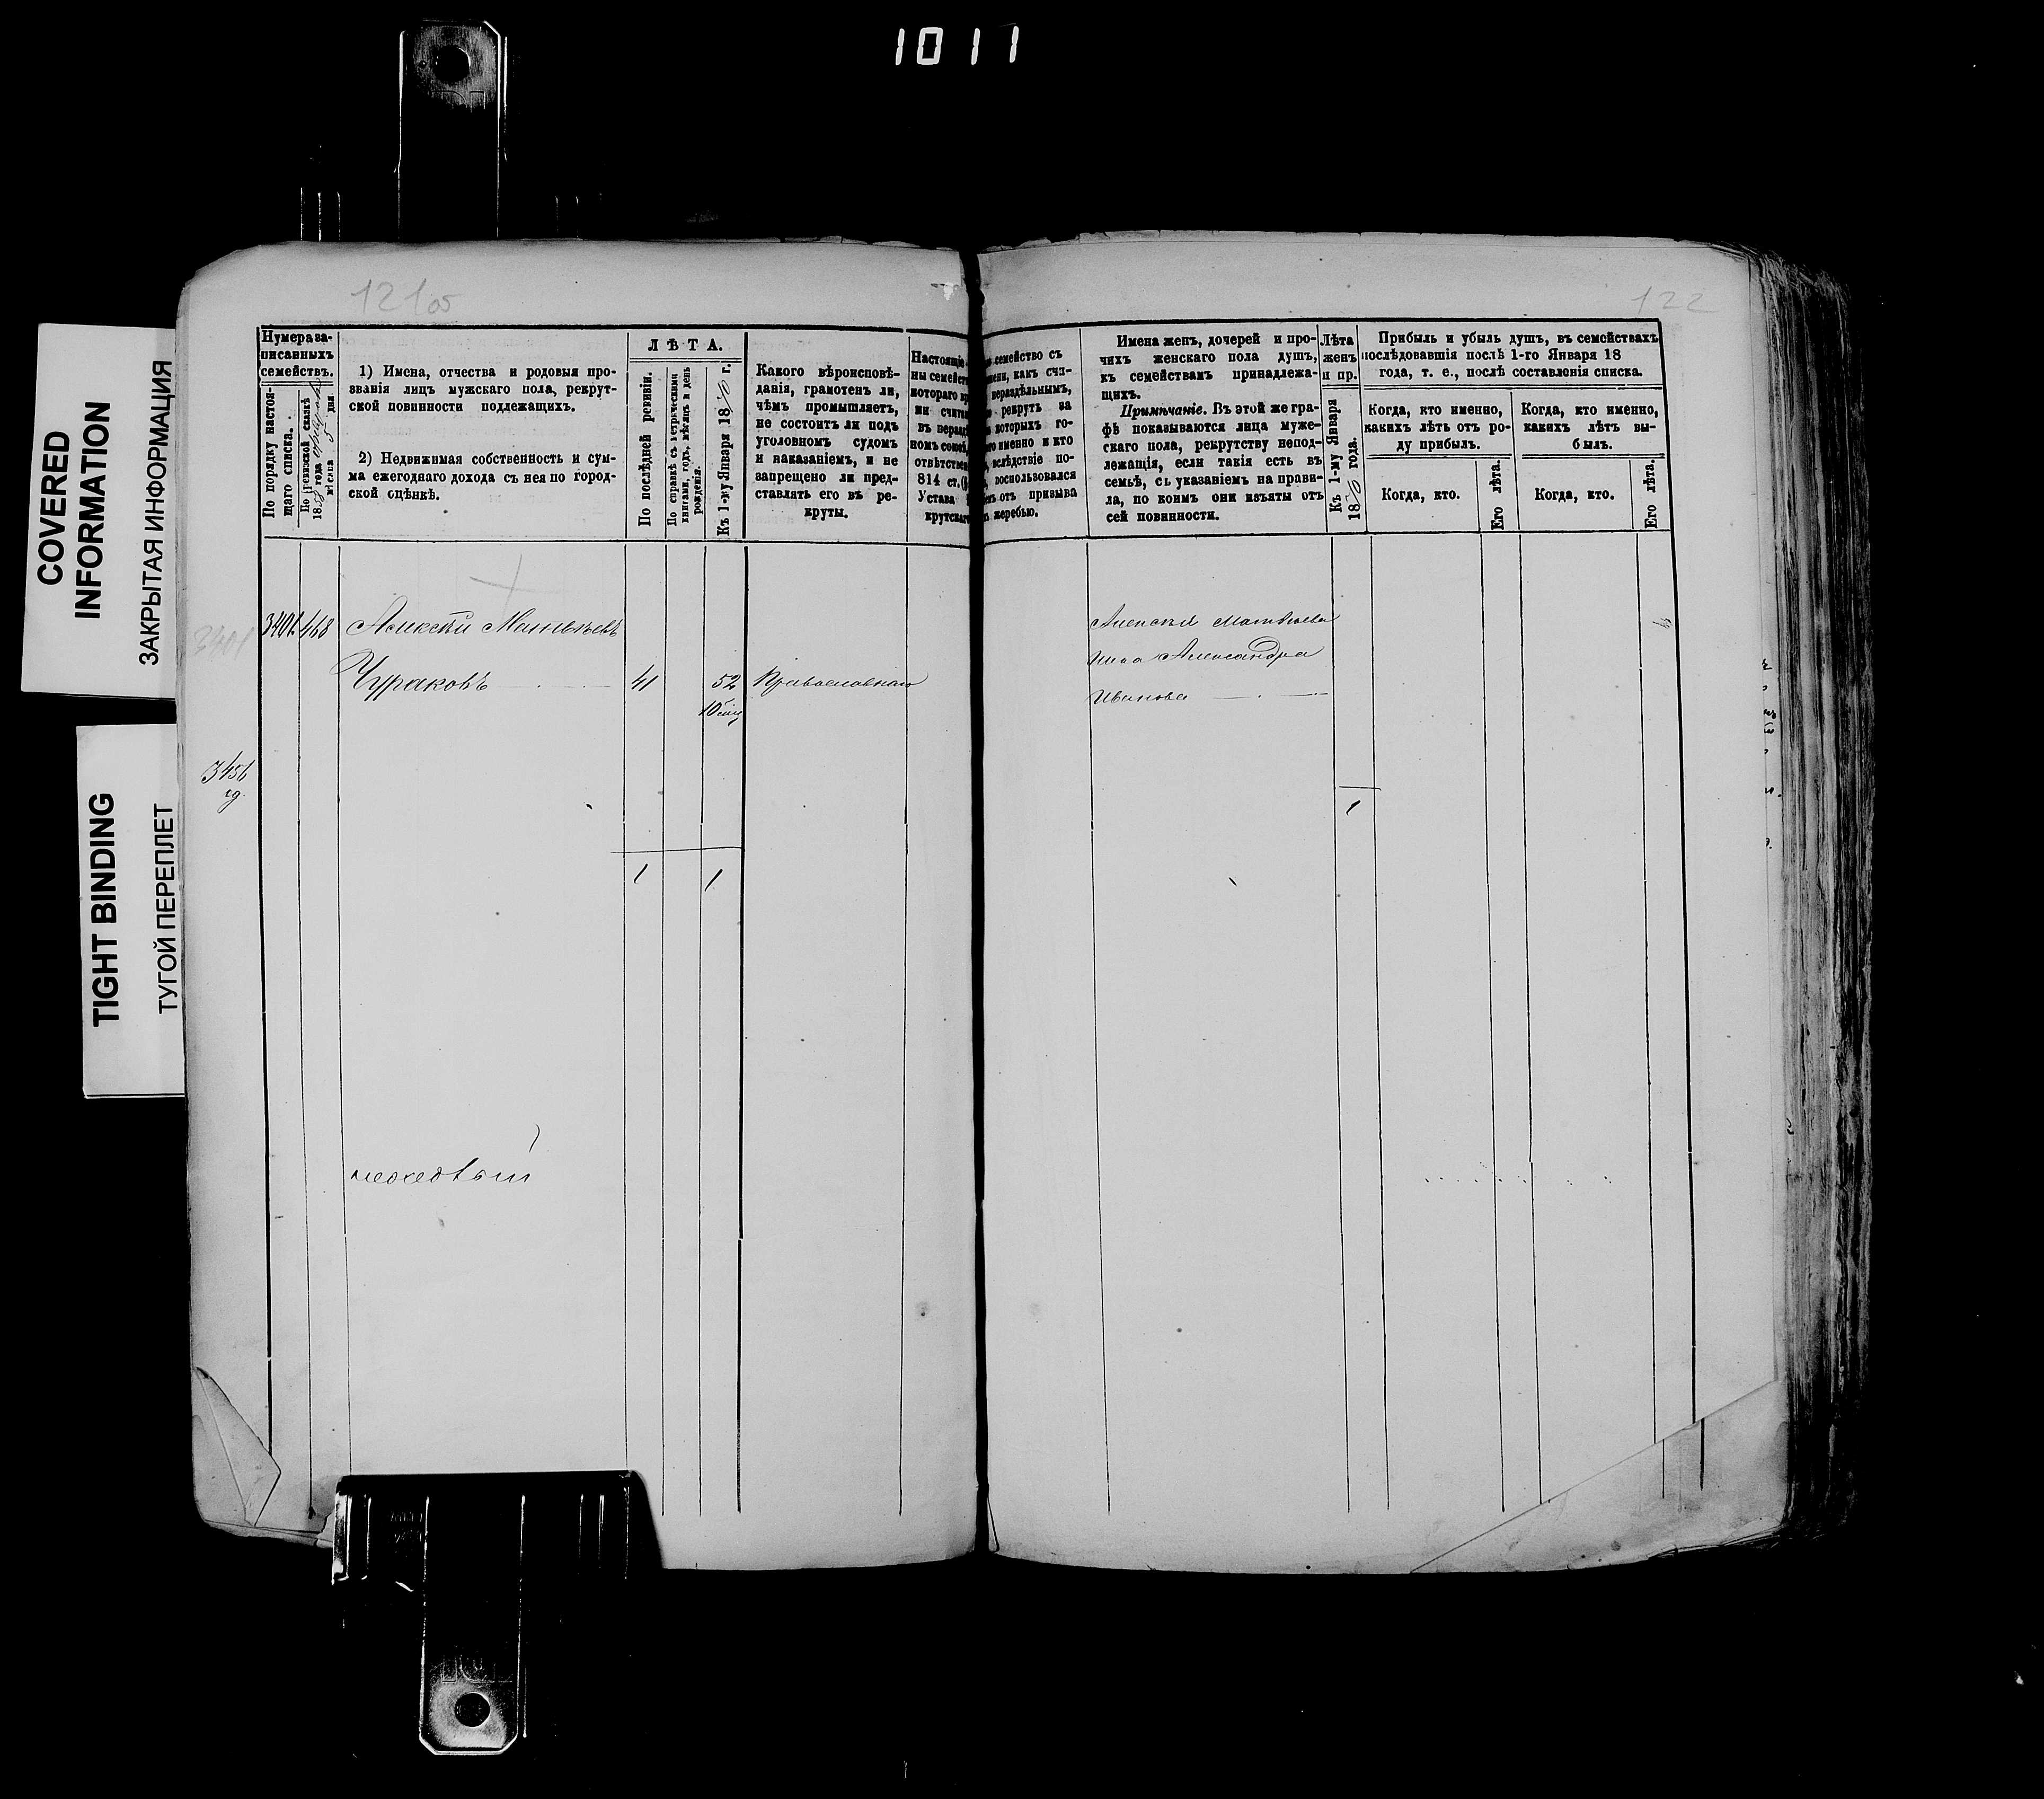 1011
COVERED
INFORMATION
ЗАКРЫТАЯ ИНФОРМАЦИЯ
TIGHT BINDING
ТУГОЙ ПЕРЕПЛЕТ
121об
Нумера за-
писанныхъ
семействъ.
По порядку настоя-
щаго списка.
По ревизской сказкѣ
18 года
мѣсяца 5 дня.
1) Имена, отчества и родовыя про-
званія лицъ мужскаго пола, рекрут-
ской повинности подлежащихъ.
2) Недвижимая собственность и сум-
ма ежегоднаго дохода съ нея по город-
ской оцѣнкѣ.
ЛѢТА.
По послѣдней ревизіи.
По справкѣ съ метрическими
книгами, годъ, мѣсяцъ и день
рожденія.
Къ 1-му Января 1870 г.
Какого вѣроисповѣ-
данія, грамотенъ ли,
чѣмъ промышляетъ,
не состоитъ ли подъ
уголовномъ судомъ
и наказаніемъ, и не
запрещено ли пред-
ставлять его въ ре-
круты.
Настоящіе
ны семейст
котораго
ни счита
въ нераз
номъ
отвѣтствен
814 ст.
Устава
крутскаго
3401
3401 468 Алексѣй Матвѣевъ
Чураковъ 41 52 Православнаго
10
3456
1 1
122
семейство съ
мени, какъ счи-
нераздѣльнымъ,
рекрутъ за
которыхъ го-
именно и кто
вслѣдствіе по-
воспользовался
отъ призыва
жеребью.
Имена женъ, дочерей и про-
чихъ женскаго пола душъ,
къ семействамъ принадлежа-
щихъ.
Примѣчаніе. Въ этой же гра-
фѣ показываются лица муже-
скаго пола, рекрутству непод-
лежащія, если такія есть въ
семьѣ, съ указаніемъ на прави-
ла, по коимъ они изъяты отъ
сей повинности.
Лѣта
женъ
и пр.
Къ 1-му Января
1870 года.
Прибыль и убыль душъ, въ семействахъ
послѣдовавшія послѣ 1-го Января 18
года, т. е., послѣ составленія списка.
Когда, кто именно,
какихъ лѣтъ отъ ро-
ду прибылъ.
Когда, кто.
Его лѣта.
Когда, кто именно,
какихъ лѣтъ вы-
былъ.
Когда, кто.
Его лѣта.
Алексѣя Матвѣева
жена Александра
Иванова
1